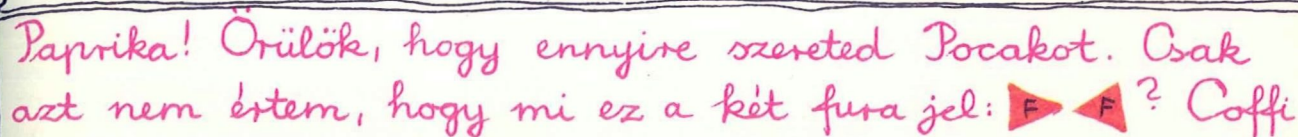 Paprika! Örülök, hogy ennyire szereted Pocakot. Csak
azt nem értem, hogy mi ez a két fura jel: F F ? Coffi